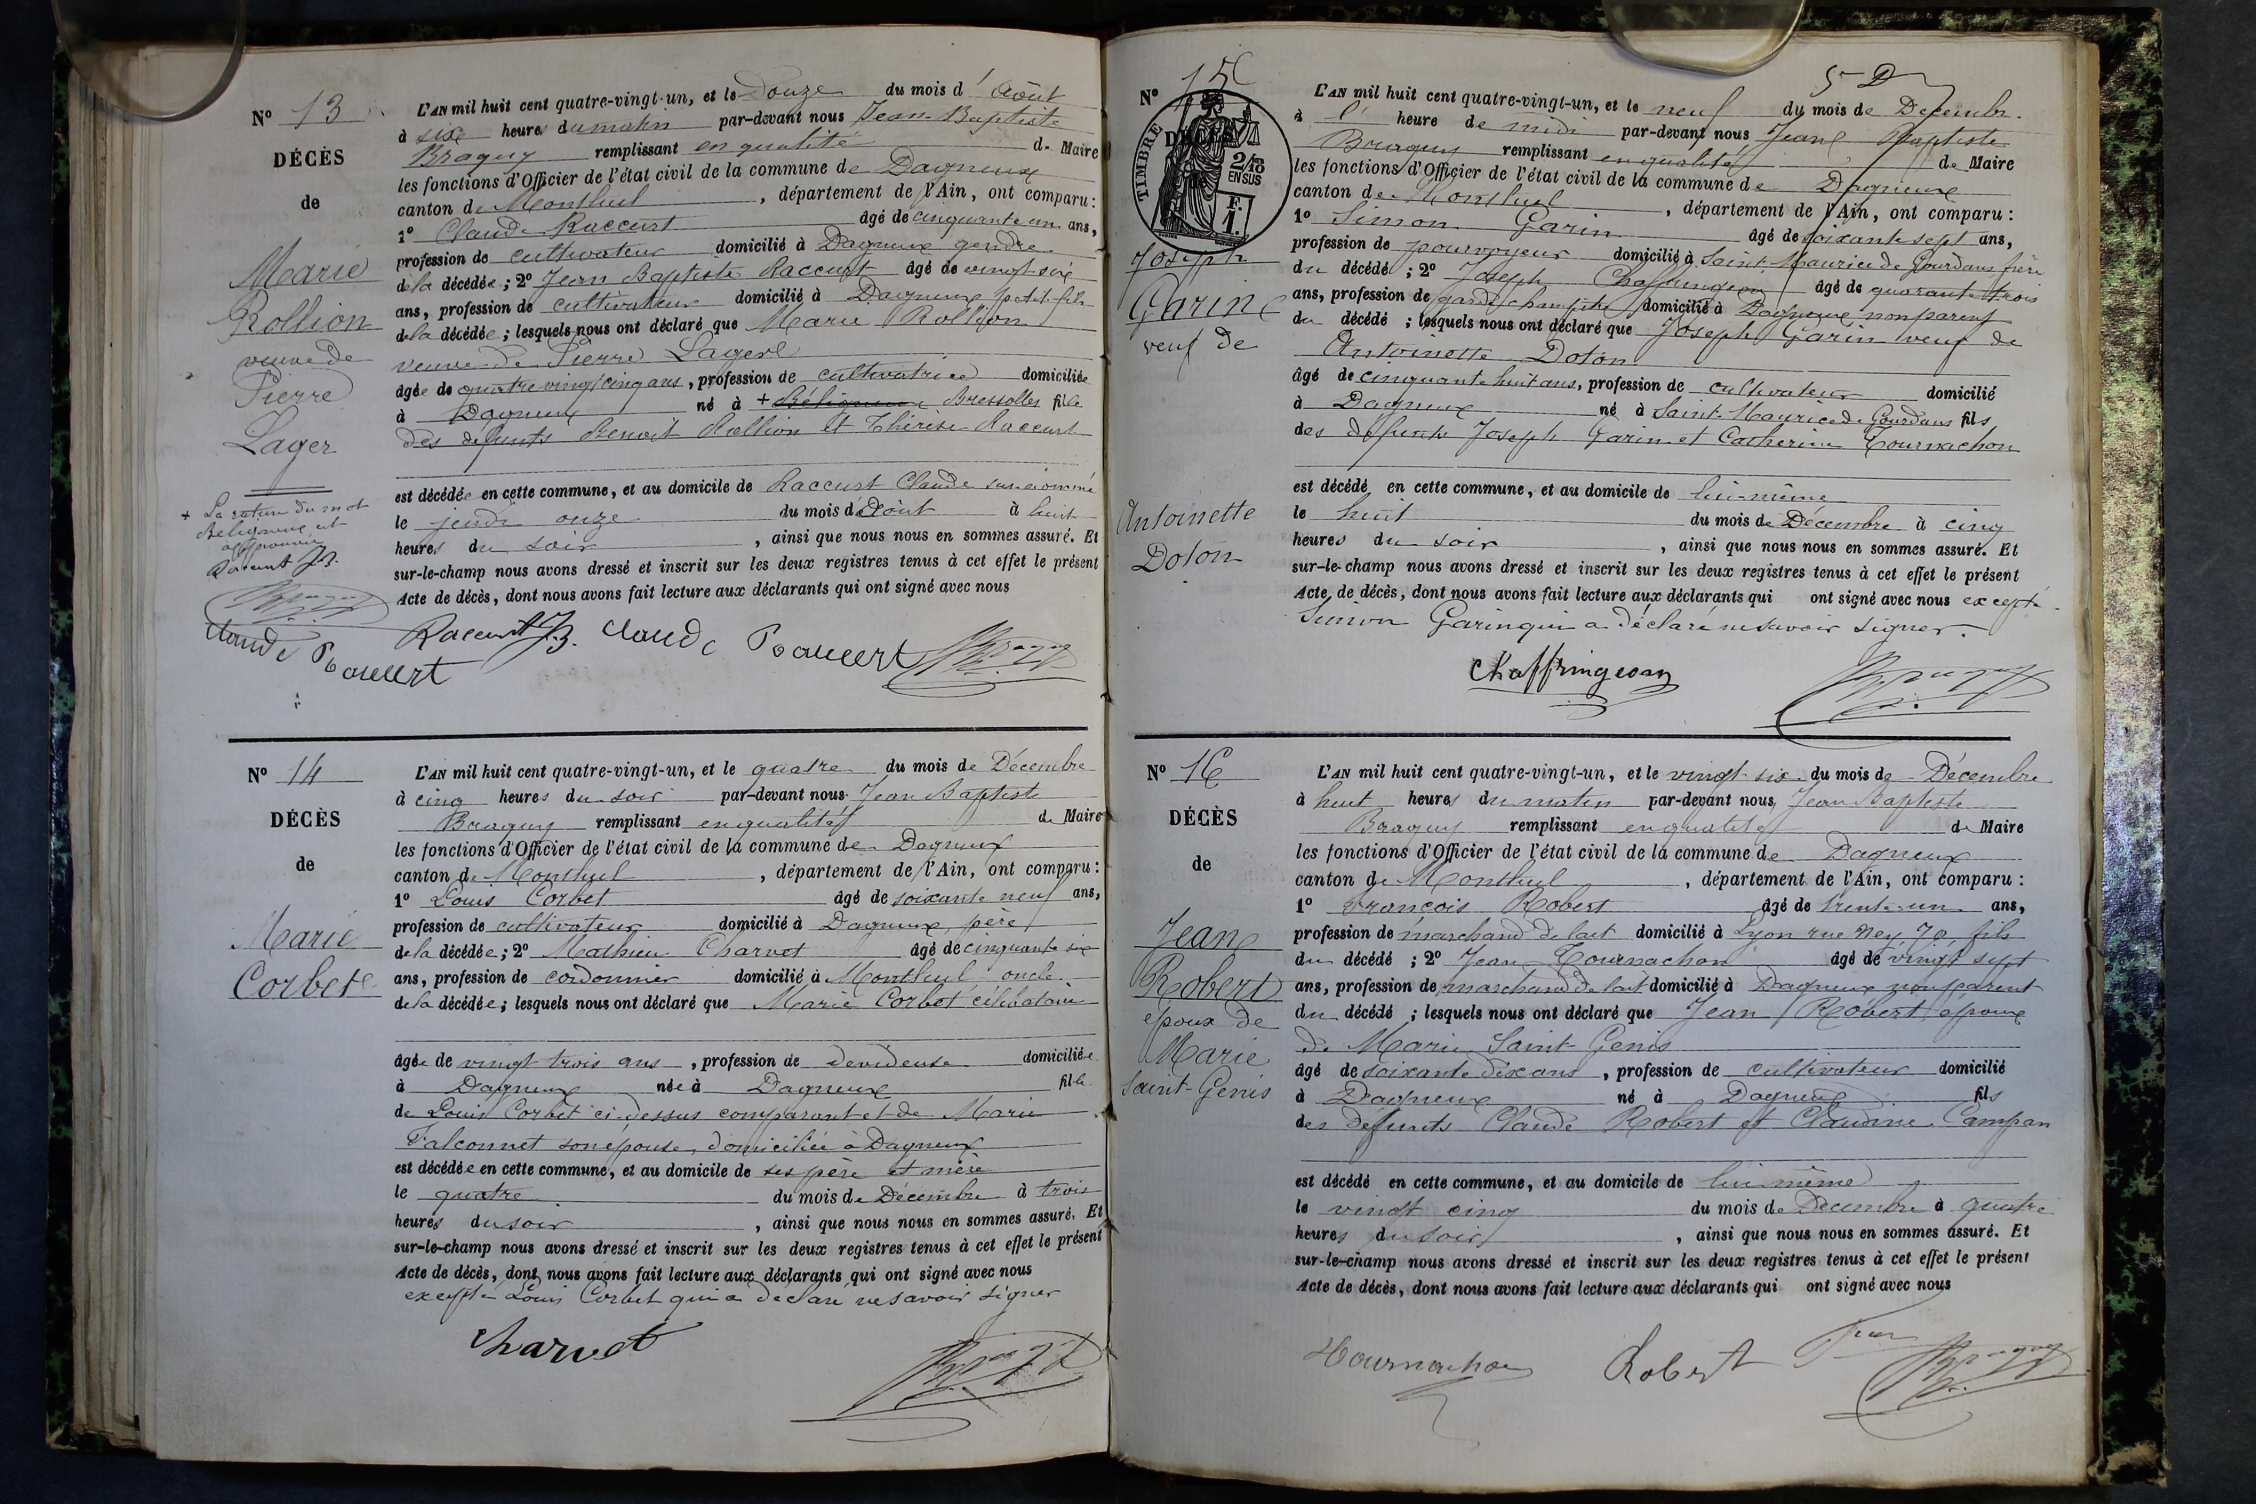 Nº 13
DÉCÈS
de
Marie
Rollion
veuve de
Pierre
Lager
+ La rature du mot
Béligneux est
approuvée
Raccurt JB.
Claude Raccurt
L'AN mil huit cent quatre-vingt-un, et le Douze du mois d'Août
à six heures du matin par-devant nous Jean Baptiste
Braguy remplissant en qualité de Maire
les fonctions d'Officier de l'état civil de la commune de Dagneux
canton de Montluel, département de l'Ain, ont comparu :
1º Claude Raccurt âgé de cinquante un ans,
profession de cultivateur domicilié à Dagneux gendre
de la décédée ; 2º Jean Baptiste Raccurt âgé de vingt six
ans, profession de cultivateur domicilié à Dagneux petit fils
de la décédée ; lesquels nous ont déclaré que Marie Rollion
veuve de Pierre Lager
âgée de quatre vingt cinq ans, profession de cultivatrice domiciliée
à Dagneux né à + Béligneux Bressolles fille
des défunts Benoit Rollion et Thérèse Raccurt
est décédée en cette commune, et au domicile de Raccurt Claude susnommé
le jeudi onze du mois d'Août à huit
heures du soir, ainsi que nous nous en sommes assuré. Et
sur-le-champ nous avons dressé et inscrit sur les deux registres tenus à cet effet le présent
Acte de décès, dont nous avons fait lecture aux déclarants qui ont signé avec nous
Raccurt JB. Claude Raccurt Braguy
Nº 14
DÉCÈS
de
Marie
Corbet
L'AN mil huit cent quatre-vingt-un, et le quatre du mois de Décembre
à cinq heures du soir par-devant nous Jean Baptiste
Braguy remplissant en qualité de Maire
les fonctions d'Officier de l'état civil de la commune de Dagneux
canton de Montluel, département de l'Ain, ont comparu :
1º Louis Corbet âgé de soixante neuf ans,
profession de cultivateur domicilié à Dagneux père
de la décédée ; 2º Mathieu Charvet âgé de cinquante six
ans, profession de cordonnier domicilié à Montluel oncle
de la décédée ; lesquels nous ont déclaré que Marie Corbet célibataire
âgée de vingt trois ans, profession de dévideuse domiciliée
à Dagneux née à Dagneux fille
de Louis Corbet ci-dessus comparant et de Marie
Falconnet son épouse, domiciliée à Dagneux
est décédée en cette commune, et au domicile de ses père et mère
le quatre du mois de Décembre à trois
heures du soir, ainsi que nous nous en sommes assuré. Et
sur-le-champ nous avons dressé et inscrit sur les deux registres tenus à cet effet le présent
Acte de décès, dont nous avons fait lecture aux déclarants qui ont signé avec nous
excepté Louis Corbet qui a déclaré ne savoir signer
Charvet Braguy
5 D
Nº 15
DÉCÈS
TIMBRE
2/10
EN SUS
F.
1.
Joseph
Garin
veuf de
Antoinette
Doton
L'AN mil huit cent quatre-vingt-un, et le neuf du mois de Decembre
à l' heure de midi par-devant nous Jean Baptiste
Braguy remplissant en qualité de Maire
les fonctions d'Officier de l'état civil de la commune de Dagneux
canton de Montluel, département de l'Ain, ont comparu :
1º Simon Garin âgé de soixante sept ans,
profession de pourvoyeur domicilié à Saint Maurice de Gourdans frère
du décédé ; 2º Joseph Chaffringeon âgé de quarante trois
ans, profession de garde champêtre domicilié à Dagneux non parent
du décédé ; lesquels nous ont déclaré que Joseph Garin veuf de
Antoinette Doton
âgé de cinquante huit ans, profession de cultivateur domicilié
à Dagneux né à Saint Maurice de Gourdans fils
des défunts Joseph Garin et Catherine Tournachon
est décédé en cette commune, et au domicile de lui-même
le huit du mois de Décembre à cinq
heures du soir, ainsi que nous nous en sommes assuré. Et
sur-le-champ nous avons dressé et inscrit sur les deux registres tenus à cet effet le présent
Acte de décès, dont nous avons fait lecture aux déclarants qui ont signé avec nous excepté
Simon Garin qui a déclaré ne savoir signer.
Chaffringeon Braguy
Nº 16
DÉCÈS
de
Jean
Robert
époux de
Marie
Saint-Genis
L'AN mil huit cent quatre-vingt-un, et le vingt-six du mois de Décembre
à huit heures du matin par-devant nous Jean Baptiste
Braguy remplissant en qualité de Maire
les fonctions d'Officier de l'état civil de la commune de Dagneux
canton de Montluel, département de l'Ain, ont comparu :
1º François Robert âgé de trente-un ans,
profession de marchand de lait domicilié à Lyon rue Ney 70 fils
du décédé ; 2º Jean Tournachon âgé de vingt sept
ans, profession de marchand de lait domicilié à Dagneux non parent
du décédé ; lesquels nous ont déclaré que Jean Robert, époux
de Marie Saint-Genis
âgé de soixante dix ans, profession de cultivateur domicilié
à Dagneux né à Dagneux fils
des défunts Claude Robert et Claudine Campan
est décédé en cette commune, et au domicile de lui-même
le vingt cinq du mois de Décembre à quatre
heures du soir, ainsi que nous nous en sommes assuré. Et
sur-le-champ nous avons dressé et inscrit sur les deux registres tenus à cet effet le présent
Acte de décès, dont nous avons fait lecture aux déclarants qui ont signé avec nous
Tournachon Robert Fran Braguy